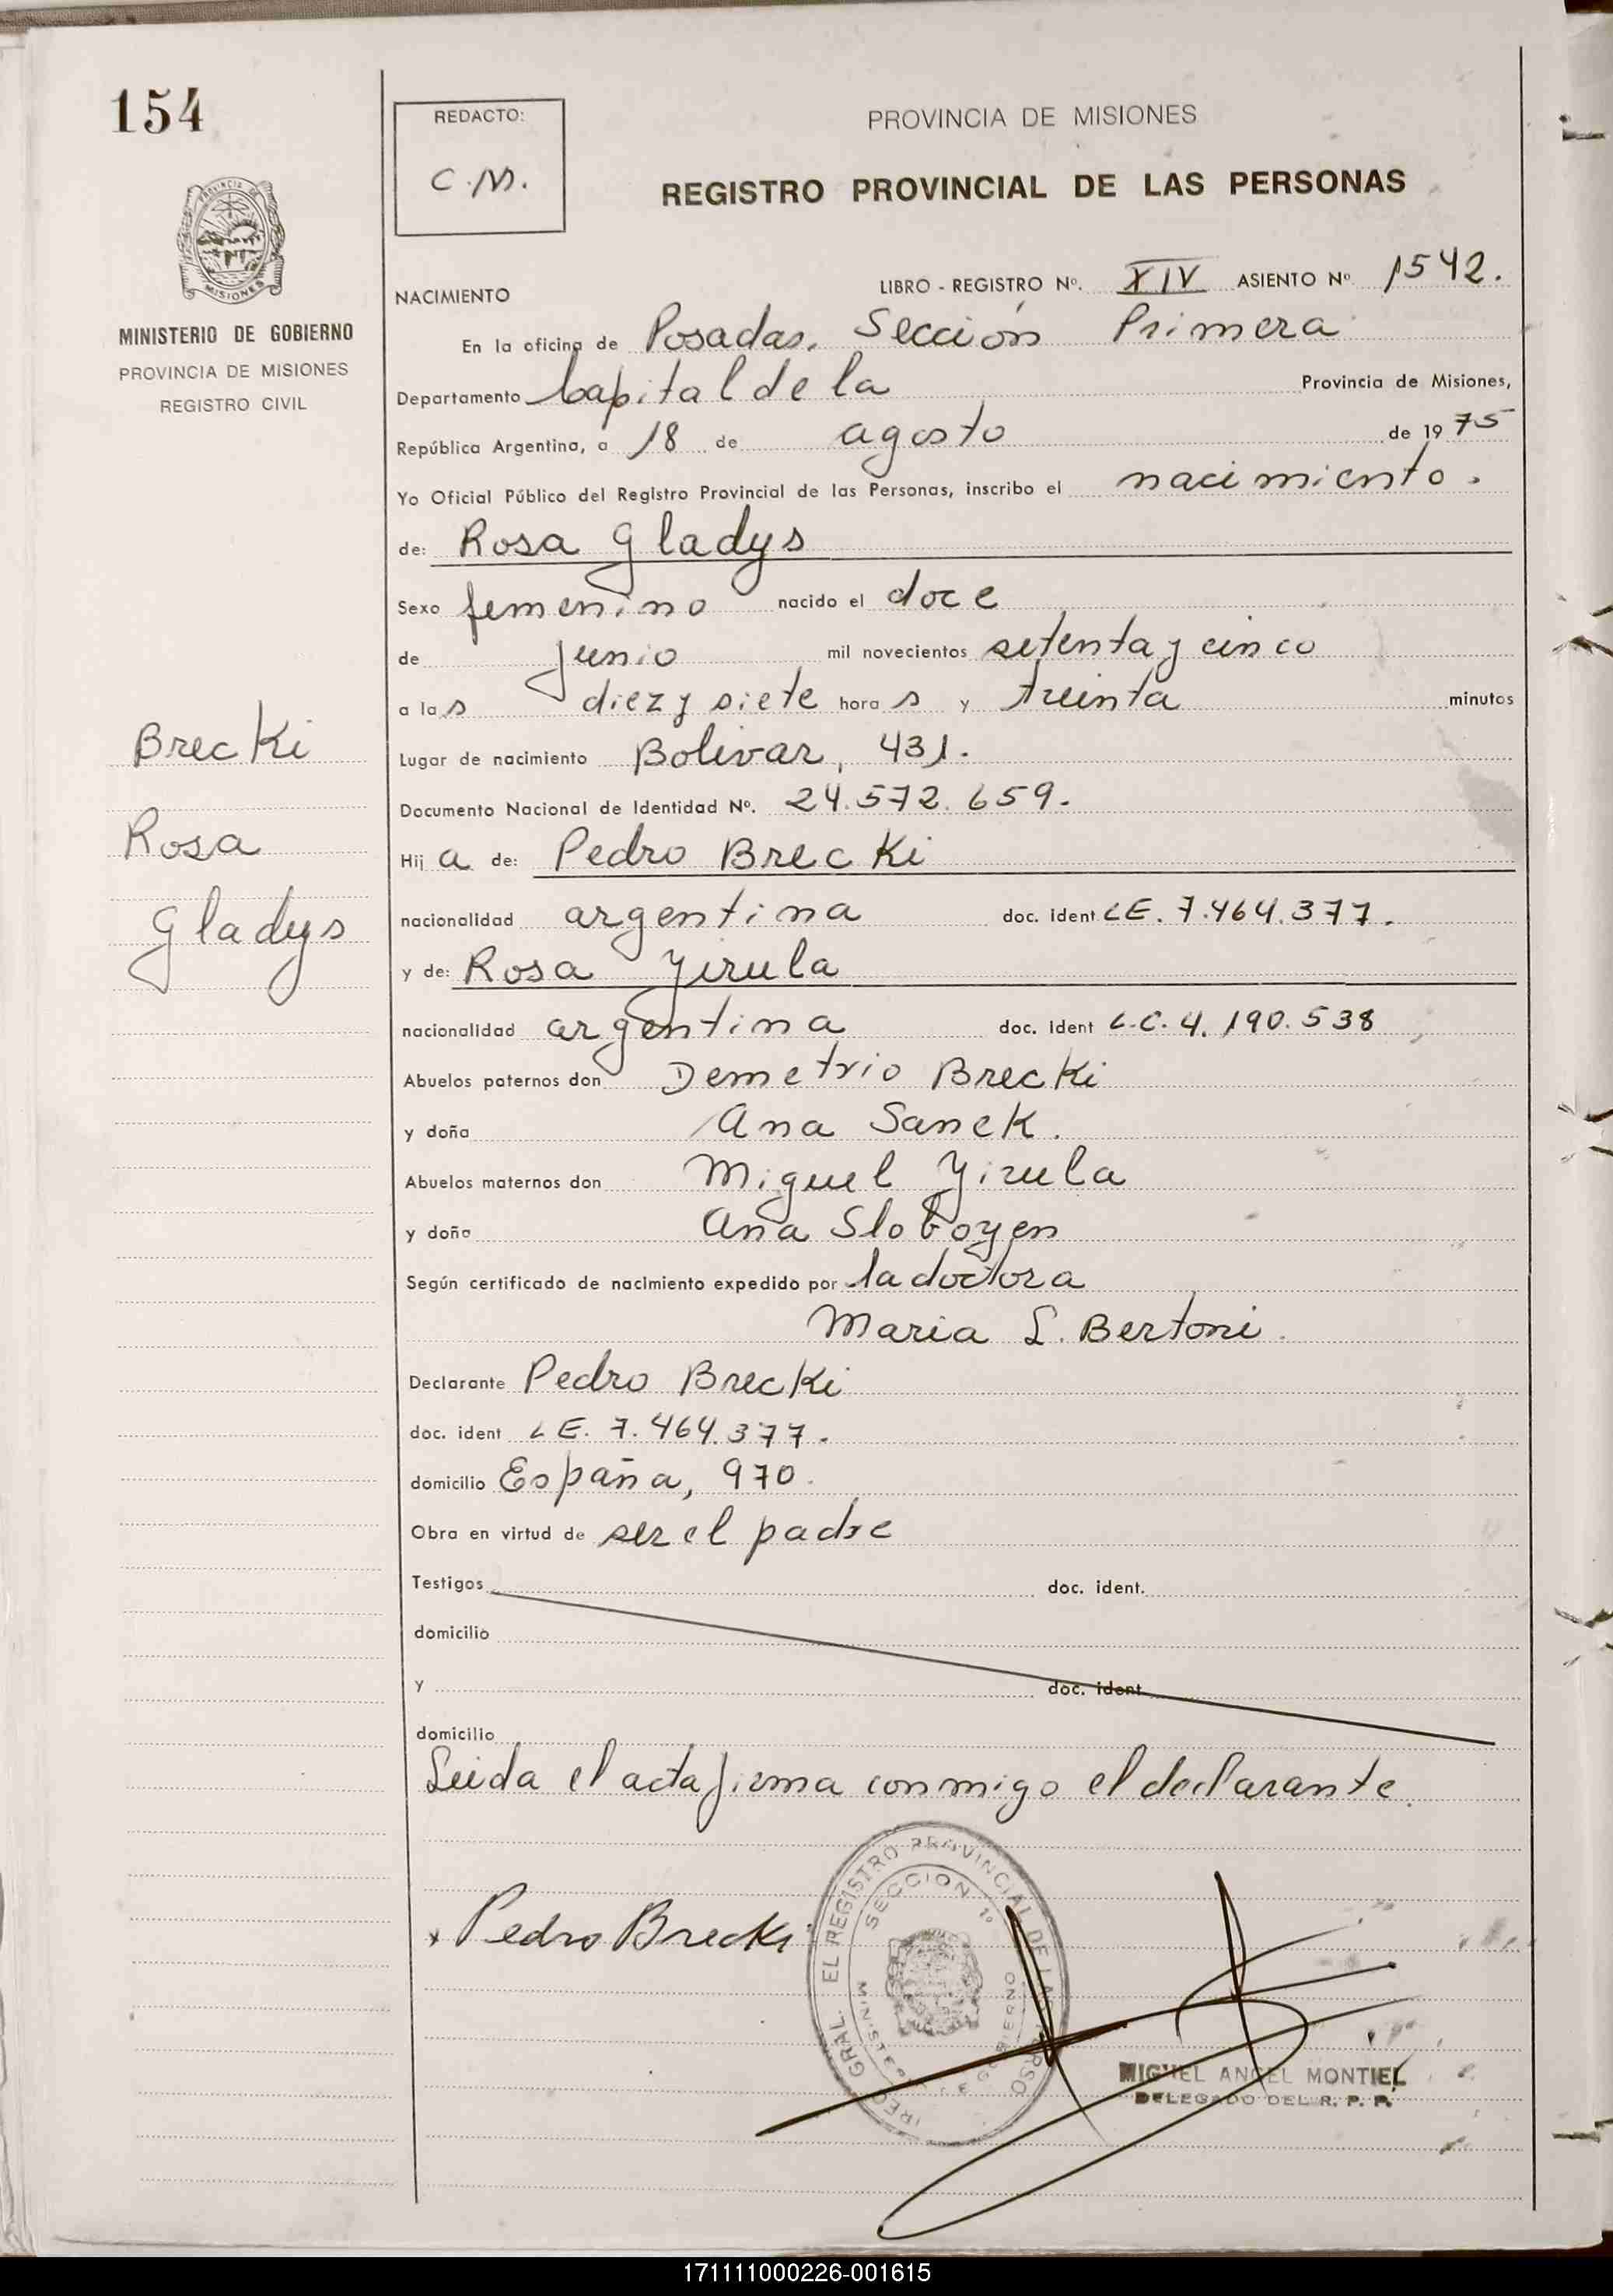 154
REDACTO:
C.M.
PROVINCIA DE MISIONES
REGISTRO PROVINCIAL DE LAS PERSONAS
PROVINCIA DE
MISIONES
MINISTERIO DE GOBIERNO
PROVINCIA DE MISIONES
REGISTRO CIVIL
Brecki
Rosa
Gladys
NACIMIENTO
LIBRO - REGISTRO Nº. XIV ASIENTO Nº. 1542.
En la oficina de Posadas. Sección Primera
Departamento Capital de la Provincia de Misiones,
República Argentina, a 18 de agosto de 1975
Yo Oficial Público del Registro Provincial de las Personas, inscribo el nacimiento.
de: Rosa Gladys
Sexo femenino nacido el doce
de junio mil novecientos setenta y cinco
a las diez y siete horas y treinta minutos
Lugar de nacimiento Bolivar, 431.
Documento Nacional de Identidad Nº. 24.572.659.
Hija de: Pedro Brecki
nacionalidad argentina doc. ident LE. 7.464.377.
y de: Rosa Yirula
nacionalidad argentina doc. Ident L.C. 4.190.538
Abuelos paternos don Demetrio Brecki
y doña Ana Sanek.
Abuelos maternos don Miguel Yirula
y doña Ana Sloboyen
Según certificado de nacimiento expedido por la doctora
Maria L. Bertoni.
Declarante Pedro Brecki
doc. ident LE. 7.464.377.
domicilio España, 970.
Obra en virtud de ser el padre
Testigos doc. ident.
domicilio
y doc. ident
domicilio
Leida el acta firma conmigo el declarante.
x Pedro Brecki
GRAL. EL REGISTRO PROVINCIAL DE
SECCION 1º
MIGUEL ANGEL MONTIEL
DELEGADO DEL R. P. P.
171111000226-001615